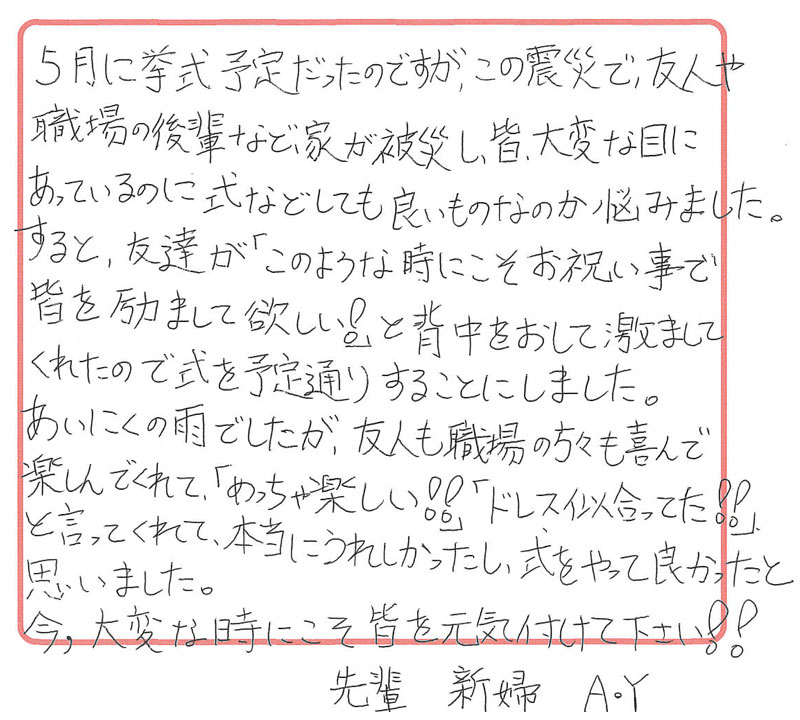 5月に挙式予定だったのですが、この震災で、友人や
職場の後輩など、家が被災し、皆、大変な目に
あっているのに式などしても良いものなのか悩みました。
すると、友達が「このような時にこそお祝い事で
皆を励まして欲しい!」と背中をおして激まして
くれたので式を予定通りすることにしました。
あいにくの雨でしたが、友人も職場の方々も喜んで
楽しんでくれて、「めっちゃ楽しい!!」「ドレス似合ってた!!」
と言ってくれて、本当にうれしかったし、式をやって良かったと
思いました。
今、大変な時にこそ皆を元気付けて下さい!!
先輩 新婦 A・Y